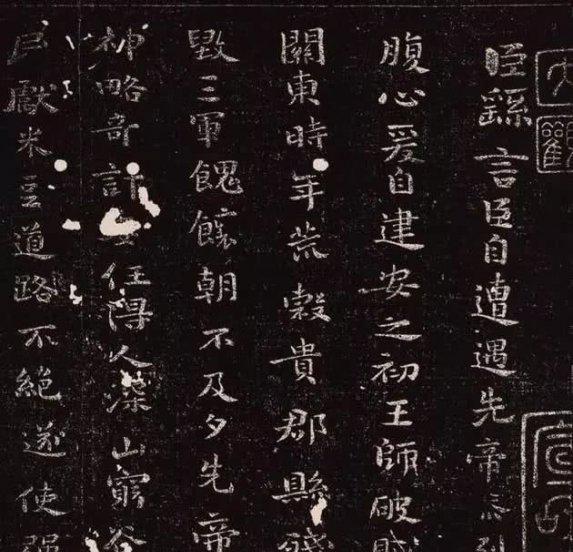 大觀
臣繇言臣自遭遇先帝忝列
腹心爰自建安之初王師破賊
關東時年荒穀貴郡縣殘
毀三軍餽饟朝不及夕先帝
神略奇計委任得人深山窮谷
民獻米豆道路不絕遂使強